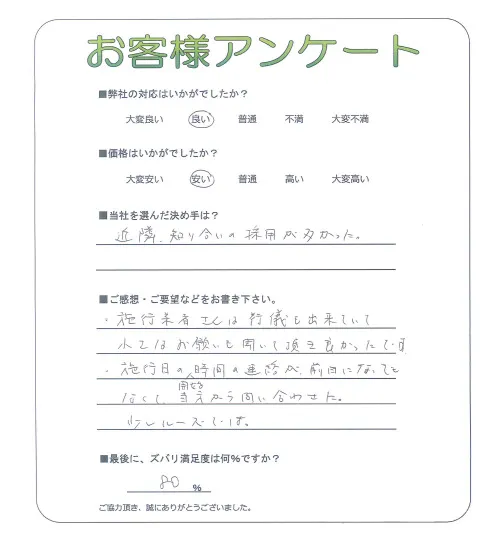 お客様アンケート
■弊社の対応はいかがでしたか？
大変良い 良い 普通 不満 大変不満
■価格はいかがでしたか？
大変安い 安い 普通 高い 大変高い
■当社を選んだ決め手は？
近隣、知り合いの採用が多かった。
■ご感想・ご要望などをお書き下さい。
・施行業者さんは行儀も出来ていて
お願いも聞いて頂き良かったです
・施行日の時間の連絡が、前日になっても
開始
なくて、当方から問い合わせた。
少しルーズでは。
■最後に、ズバリ満足度は何％ですか？
80 %
ご協力頂き、誠にありがとうございました。